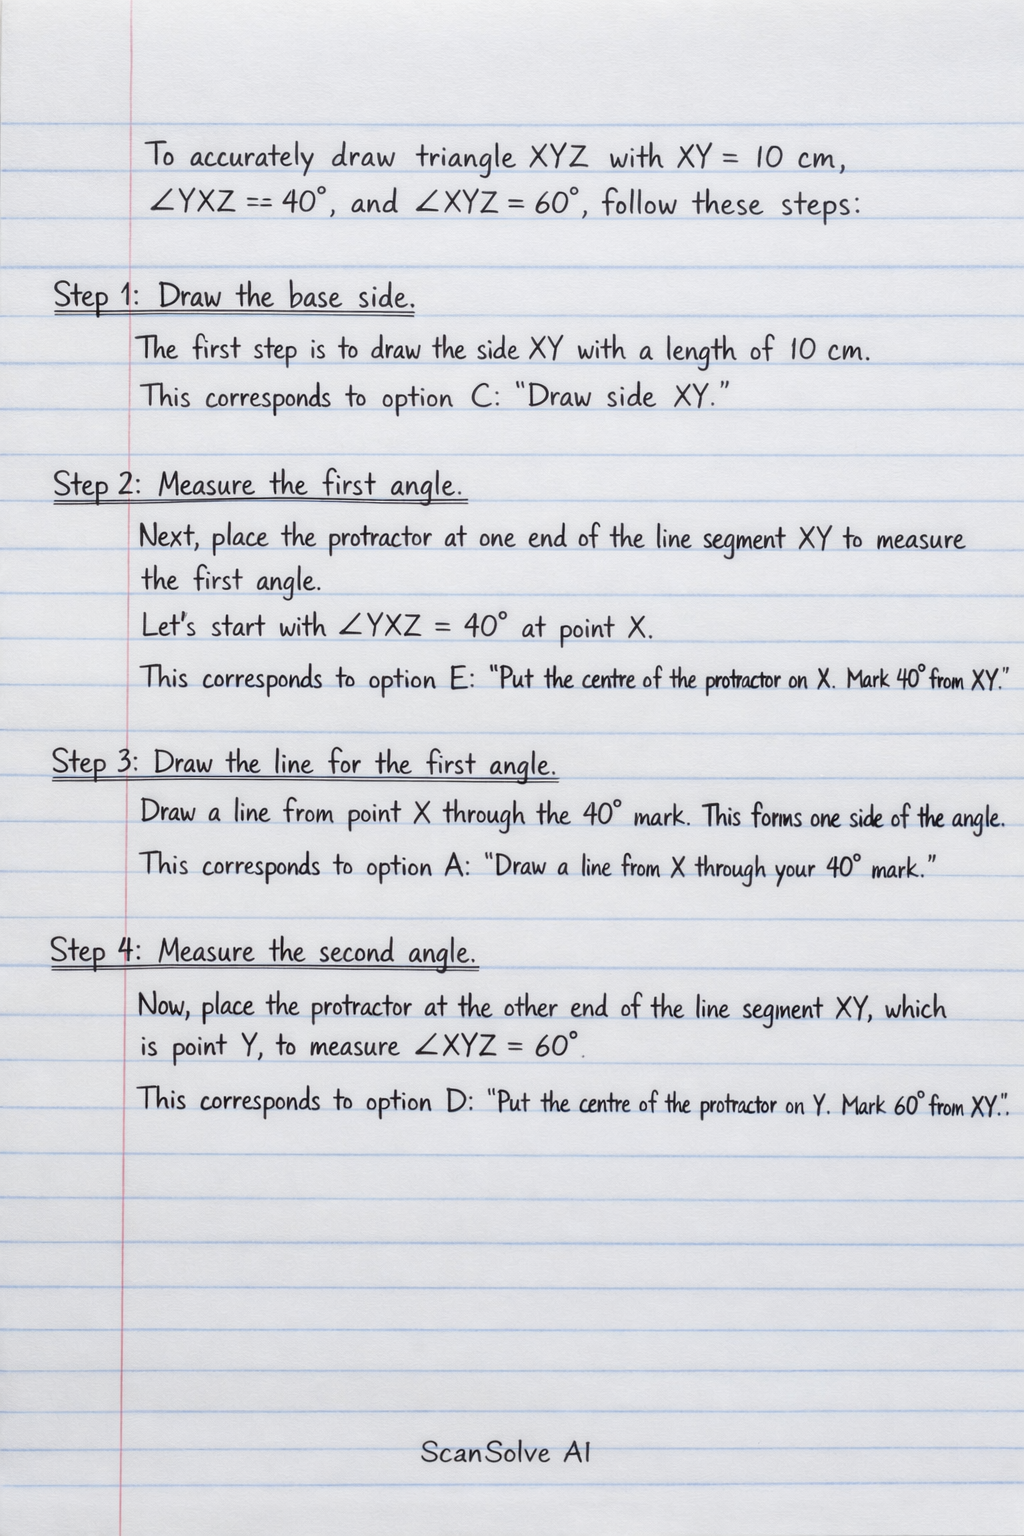 To accurately draw triangle XYZ with XY = 10 cm,
∠YXZ == 40°, and ∠XYZ = 60°, follow these steps:
Step 1: Draw the base side.
The first step is to draw the side XY with a length of 10 cm.
This corresponds to option C: "Draw side XY."
Step 2: Measure the first angle.
Next, place the protractor at one end of the line segment XY to measure
the first angle.
Let's start with ∠YXZ = 40° at point X.
This corresponds to option E: "Put the centre of the protractor on X. Mark 40° from XY."
Step 3: Draw the line for the first angle.
Draw a line from point X through the 40° mark. This forms one side of the angle.
This corresponds to option A: "Draw a line from X through your 40° mark."
Step 4: Measure the second angle.
Now, place the protractor at the other end of the line segment XY, which
is point Y, to measure ∠XYZ = 60°.
This corresponds to option D: "Put the centre of the protractor on Y. Mark 60° from XY.".
ScanSolve AI